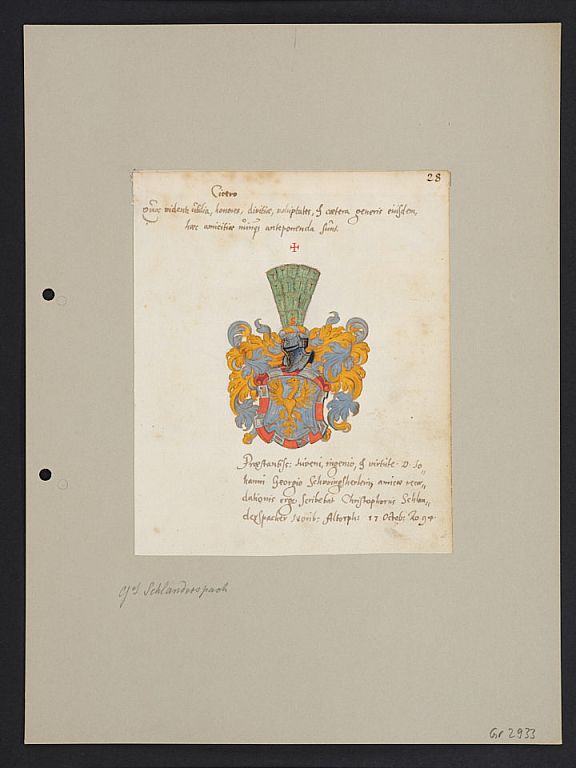 28
Cicero
Quae videntr utilia, honores, divitiae, voluptates, & caetera generis eiusdem,
haec amicitiae nunqз anteponenda sunt.
Praestantiss: Iuveni, ingenio, & virtute D. Jo-
hanni Georgio amicae reco-
dationis ergo scribebat Christophorus Schlan-
derspacher Norib: Altorph: 17 Octob: Ao 94.
Schlanderspach
Gr 2933